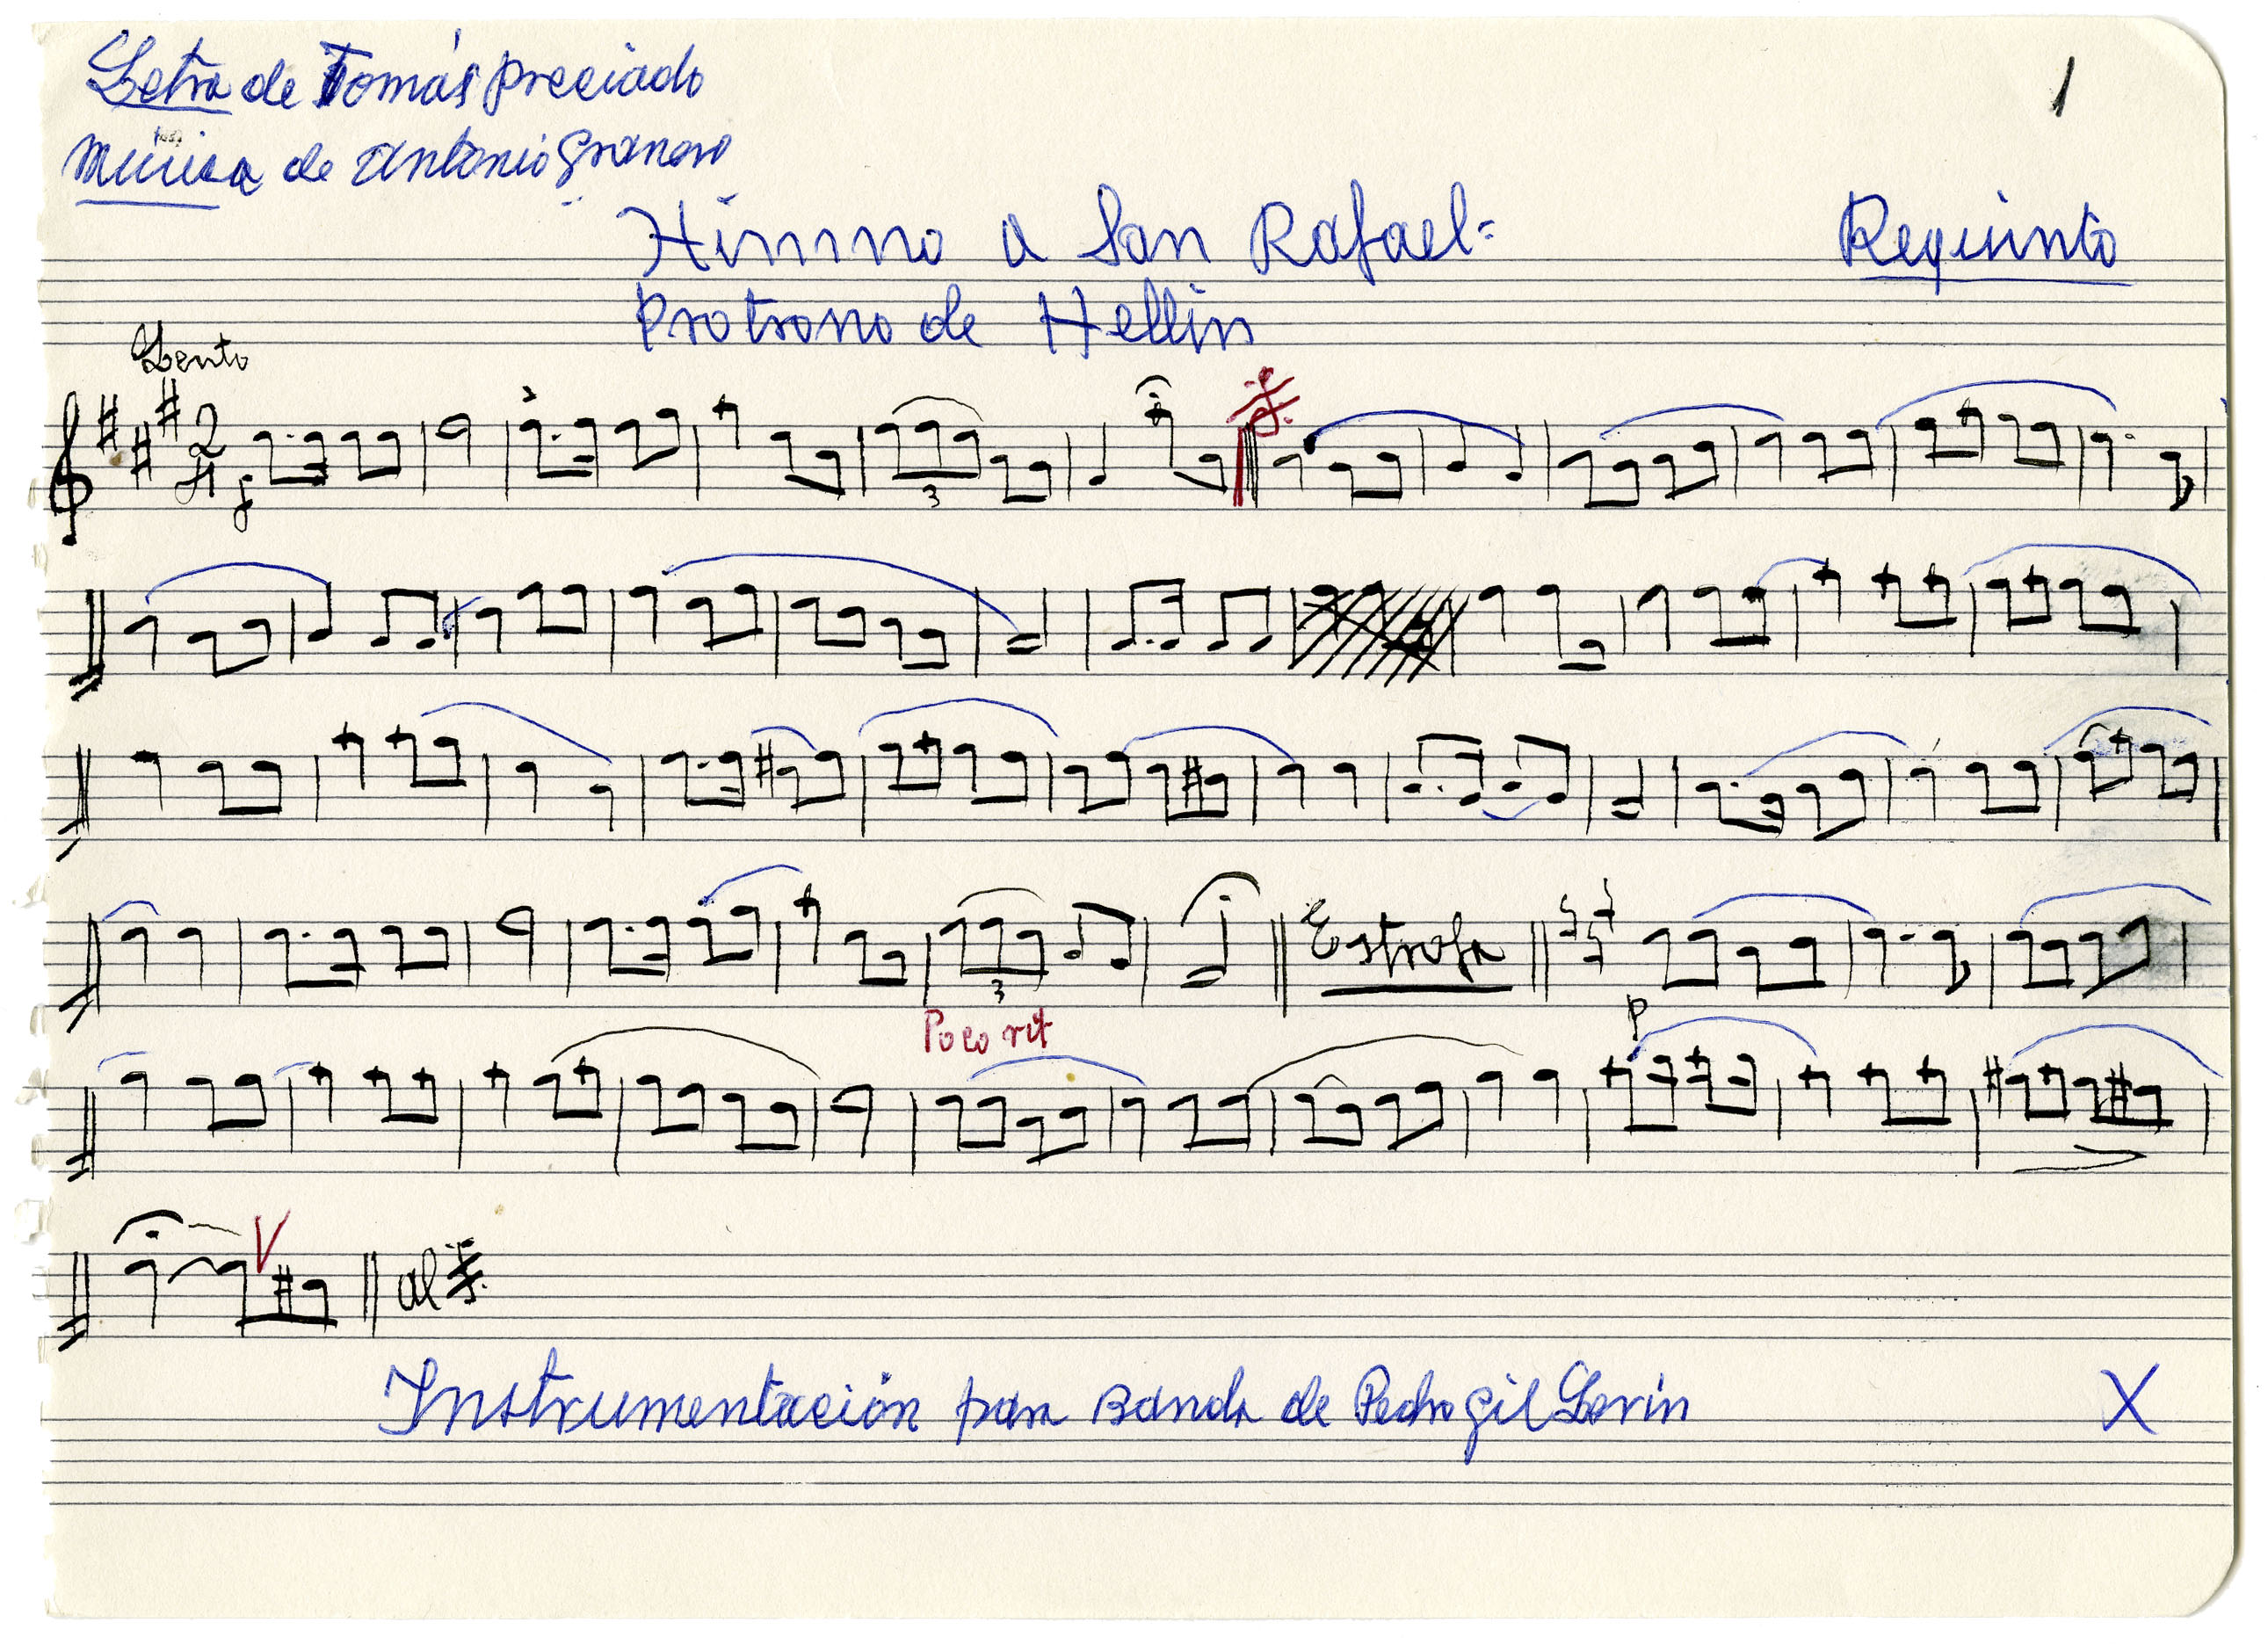 Letra de Tomás Preciado
1
Música de Antonio Granero
Himno a San Rafael=
Requinto
Protrono de Hellín
Lento
2
4
f
3
Estrofa
3
p
Poco rit
V
al
Instrumentación para Banda de Pedro Gil Lerín
X